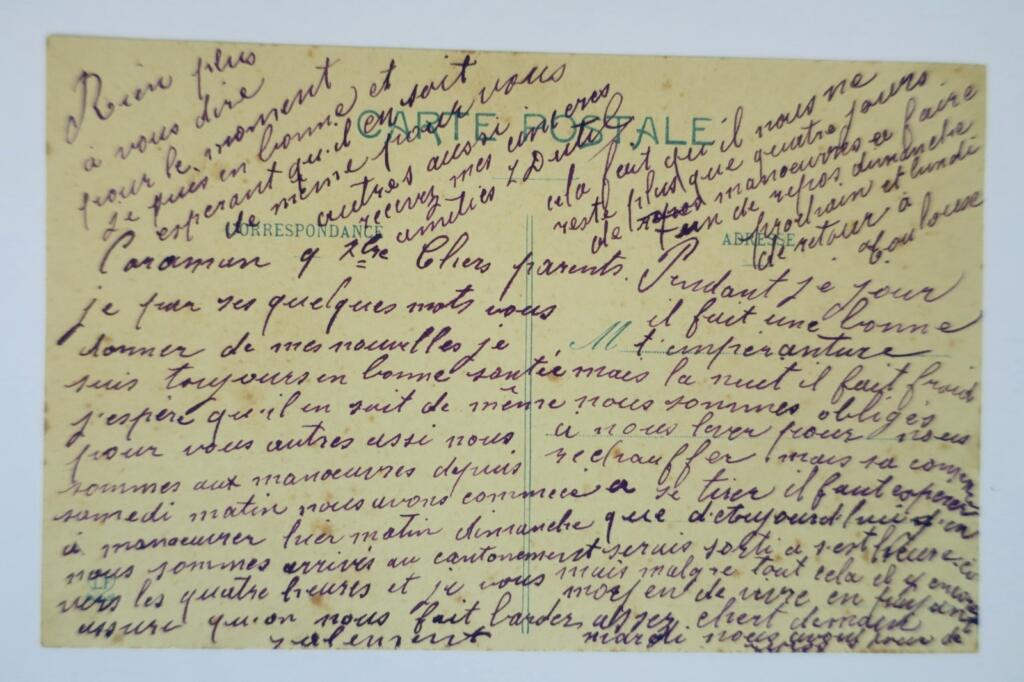 CARTE POSTALE
CORRESPONDANCE
ADRESSE
M
Caraman 9 Xbre Chers parents.
je par ses quelques mots vous
donner de mes nouvelles je
suis toujours en bonne santée
j'espère qu'il en soit de même
pour vous autres aussi nous
sommes aux manoeuvres depuis
samedi matin nous avons commencé
à manoeuvrer hier matin dimanche
nous sommes arrivés au cantonement
vers les quatre heures et je vous
assure qu'on nous fait barder
salement
Pendant le jour
il fait une bonne
temperanture
mais la nuit il fait froid
nous sommes obligés
a nous lever pour nous
rechauffer mais sa commence
a se tirer il faut esperer
que d'etujourd'hui
serais sorti a s'est heure ci
mais malgre tout cela il y encore
moyen de vivre en
assez chert demain
mardi nous avons jour de
cela fait qu'il nous ne
reste plus que quatre jours
de manoeuvres a faire
1 an de repos dimanche
prochain et lundi
de retour à
Toulouse
Rien plus
à vous dire
pour le moment
je suis en bonne et
esperant qu'il en soit
de même pour vous
autres aussi
recevez mes sinceres
amities